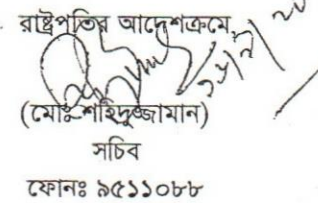 রাষ্ট্রপতির আদেশক্রমে
(মোঃ শহিদুজ্জামান)
সচিব
ফোনঃ ৯৫১১০৮৮